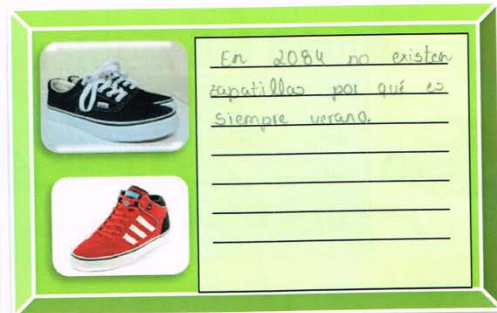 En 2084 no existen
zapatillas por qué es
siempre verano.